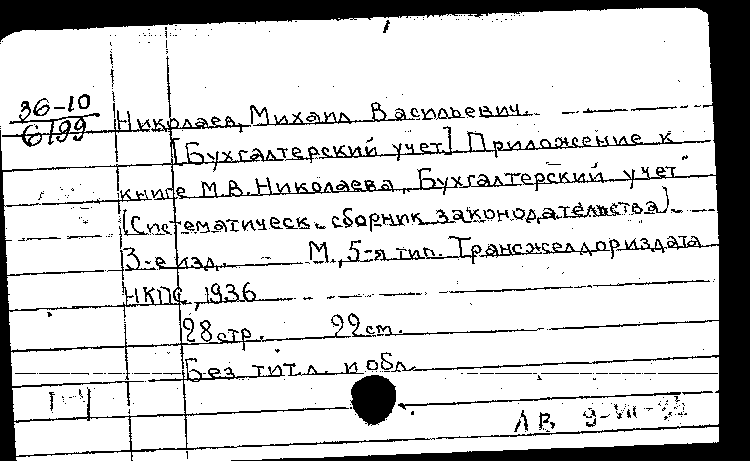 36-10
6199
Николаев, Михаил Васильевич.
[Бухгалтерский учет] Приложение к
книге М.В. Николаева „Бухгалтерский учет"
(Систематическ. сборник законодательства).
3-е изд. - М., 5-я тип. Трансжелдориздата
НКПС, 1936
28 стр. 22 см.
Без тит. л. и обл.
9-VII-36